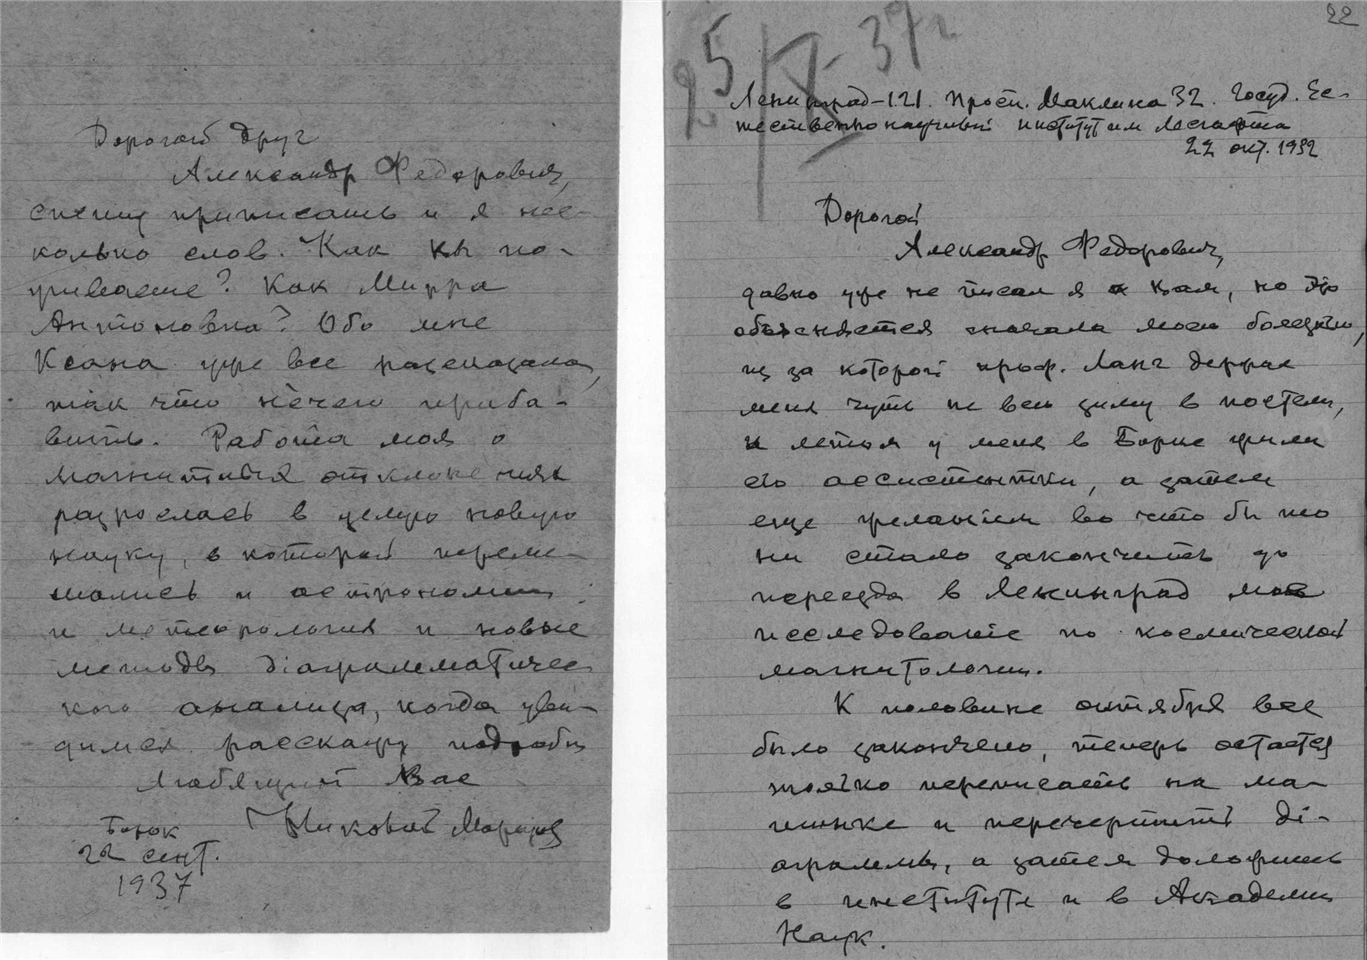 Дорогой друг
Александр Федорович,
спешу приписать и я нес-
колько слов. Как вы по-
живаете? Как Мирра
Антоновна? Обо мне
Ксана уже все рассказала,
так что нечего приба-
вить. Работа моя о
магнитных отклонениях
разрослась в целую новую
науку, в которой переме-
шались и астрономия
и метеорология и новые
методы діаграмматичес-
кого анализа, когда уви-
димся расскажу подробно
Любящий Вас
Николай Морозов
Борок
22 сент.
1937
22
25/IX-37г
Ленинград-121. Просп. Маклина 32. Госуд. Ес-
тественно научный институт им Лесгафта
22 окт. 1932
Дорогой
Александр Федорович,
давно уже не писал я к вам, но это
объясняется сначала моею болезнью,
из за которой проф. Ланг держал
меня чуть не всю зиму в постели,
и летом у меня в Борке жили
его ассистентки, а затем
еще желанием во что бы то
ни стало закончить до
переезда в Ленинград мое
исследованіе по космической
магнитологии.
К половине октября все
было закончено, теперь остается
только переписать на ма-
шинке и перечертить ді-
аграммы, а затем доложить
в институте и в Академии
Наук.